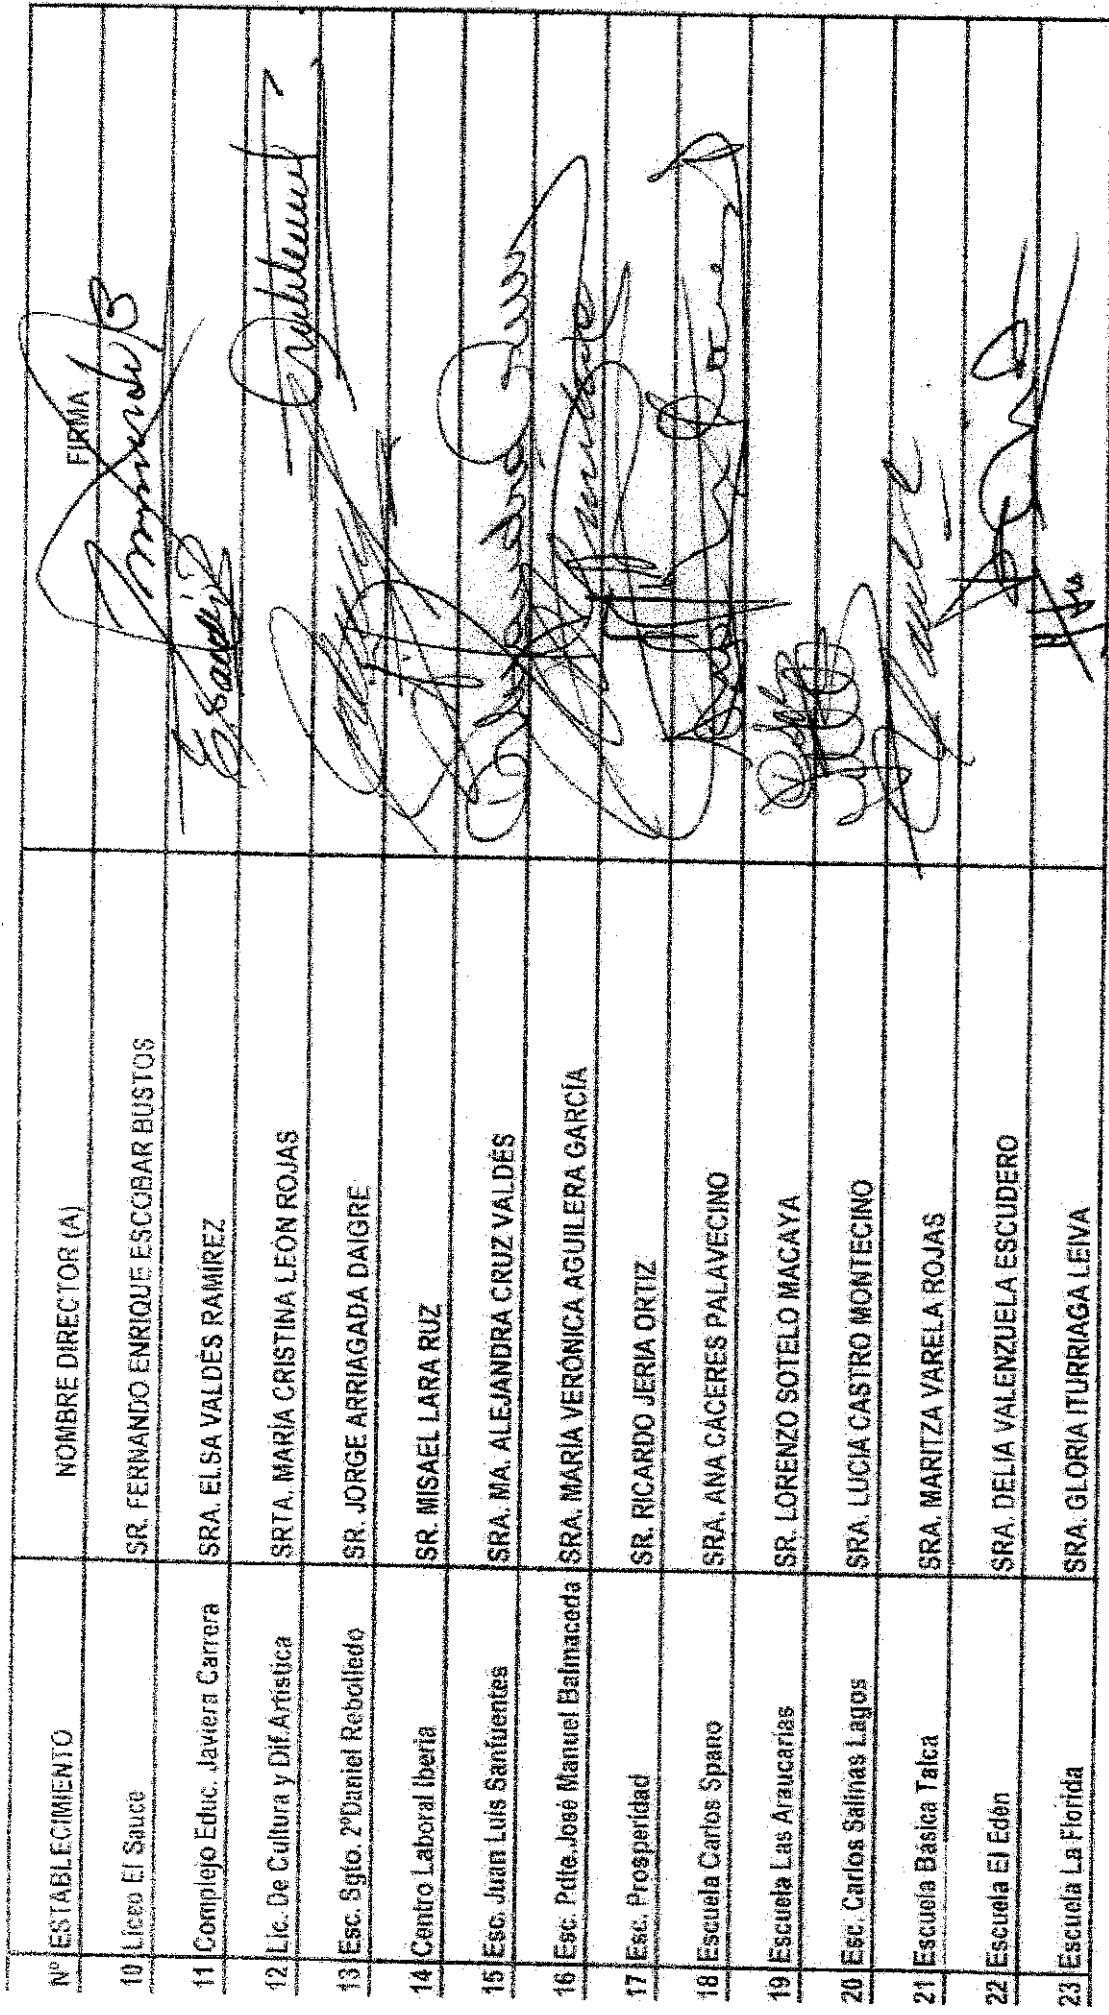 Nº ESTABLECIMIENTO NOMBRE DIRECTOR (A) FIRMA
10 Liceo El Sauce SR. FERNANDO ENRIQUE ESCOBAR BUSTOS
11 Complejo Educ. Javiera Carrera SRA. ELSA VALDÉS RAMÍREZ
12 Lic. De Cultura y Dif. Artística SRTA. MARÍA CRISTINA LEÓN ROJAS
13 Esc. Sgto. 2º Daniel Rebolledo SR. JORGE ARRIAGADA DAIGRE
14 Centro Laboral Iberia SR. MISAEL LARA RUZ
15 Esc. Juan Luis Sanfuentes SRA. MA. ALEJANDRA CRUZ VALDÉS
16 Esc. Pdte. José Manuel Balmaceda SRA. MARÍA VERÓNICA AGUILERA GARCÍA
17 Esc. Prosperidad SR. RICARDO JERIA ORTIZ
18 Escuela Carlos Spano SRA. ANA CÁCERES PALAVECINO
19 Escuela Las Araucarias SR. LORENZO SOTELO MACAYA
20 Esc. Carlos Salinas Lagos SRA. LUCIA CASTRO MONTECINO
21 Escuela Básica Talca SRA. MARITZA VARELA ROJAS
22 Escuela El Edén SRA. DELIA VALENZUELA ESCUDERO
23 Escuela La Florida SRA. GLORIA ITURRIAGA LEIVA